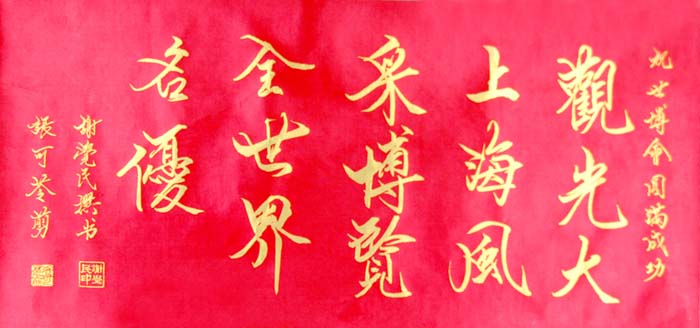 祝世博會圓滿成功
觀光大
上海風
采博覽
全世界
名優
謝覺民撰书
張可荃剪
謝覺民印